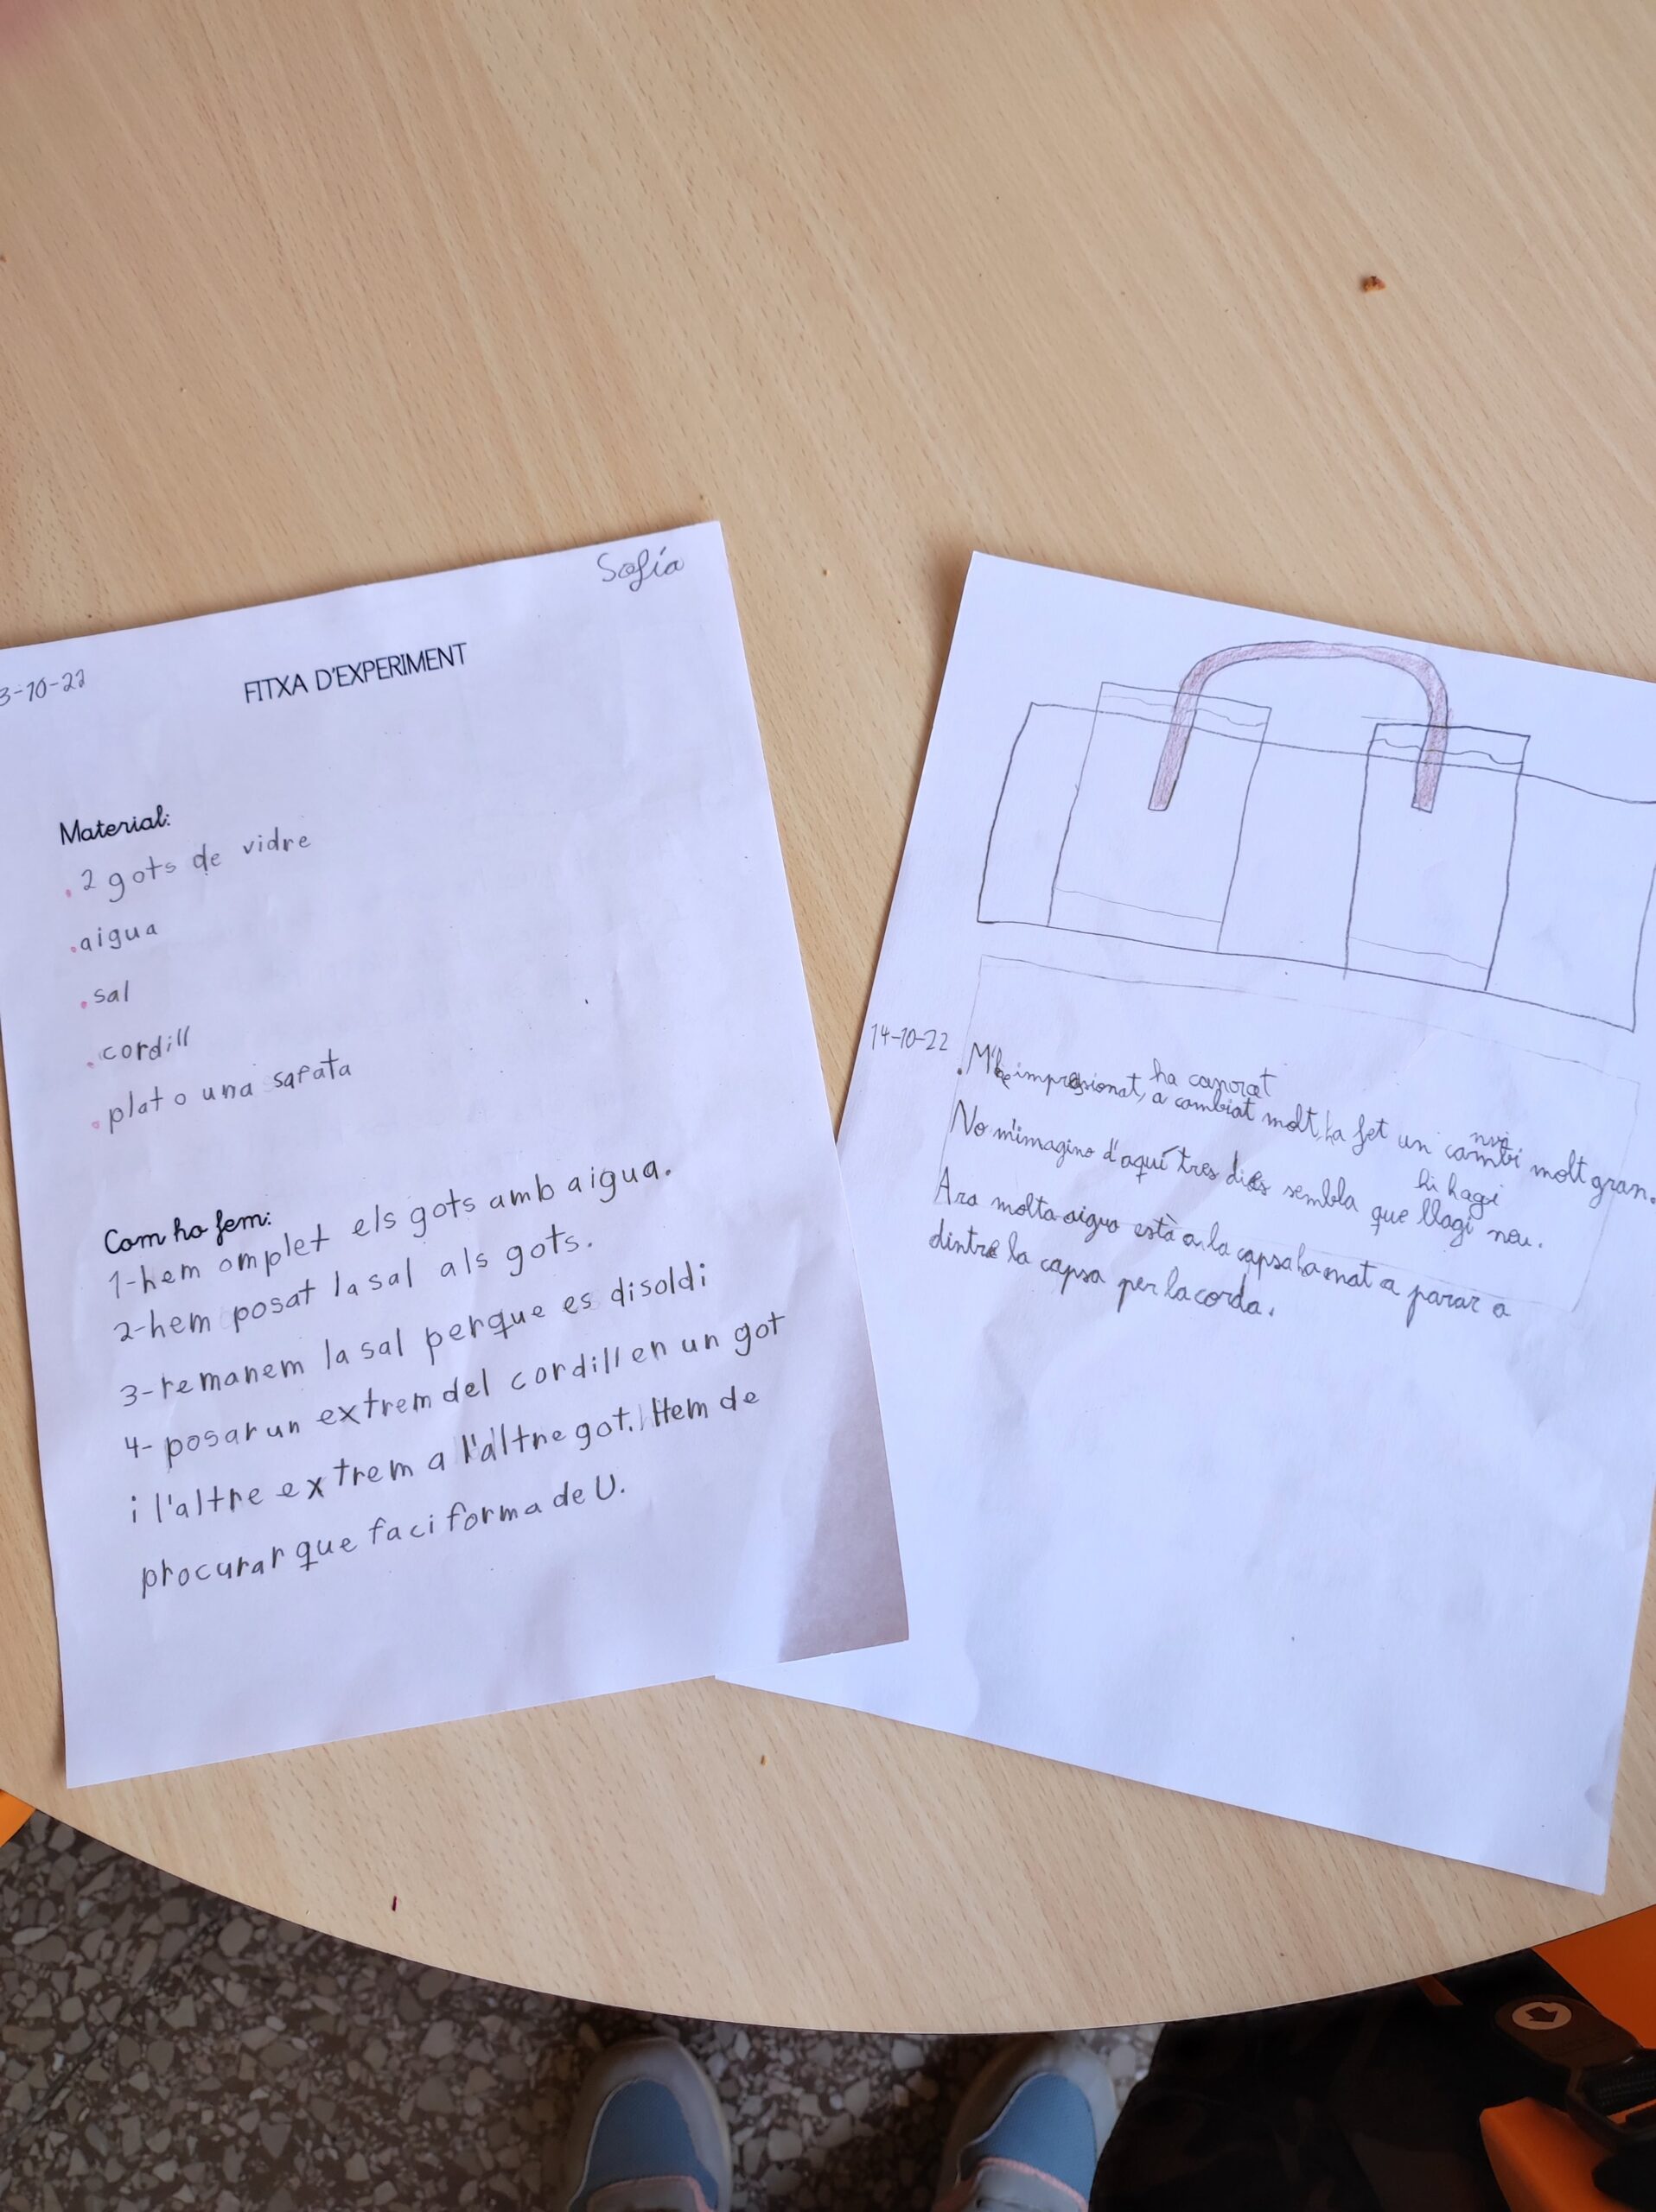 Sofía
3-10-22
FITXA D'EXPERIMENT
Material:
. 2 gots de vidre
. aigua
. sal
. cordill
. plat o una safata
Com ho fem:
1-hem omplet els gots amb aigua.
2-hem posat la sal als gots.
3-remanem la sal perque es disoldi
4- posar un extrem del cordill en un got
i l'altre extrem a l'altre got. Hem de
procurar que faci forma de U.
14-10-22
ha canviat
nvi
molt, ha fet un cambi molt gran.
hi hagi
No m'imagino d'aquí tres dies sembla que llagi neu.
Ara molta aigua està a la capsa ha anat a parar a
dintre la capsa per la corda.